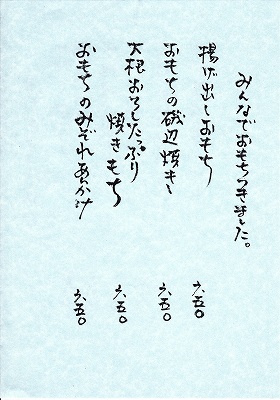 みんなでおもちつきました。
揚げ出しおもち 六五〇
おもちの磯辺焼き 六五〇
大根おろしたっぷり
焼きもち 六五〇
おもちのみぞれあんかけ 六五〇